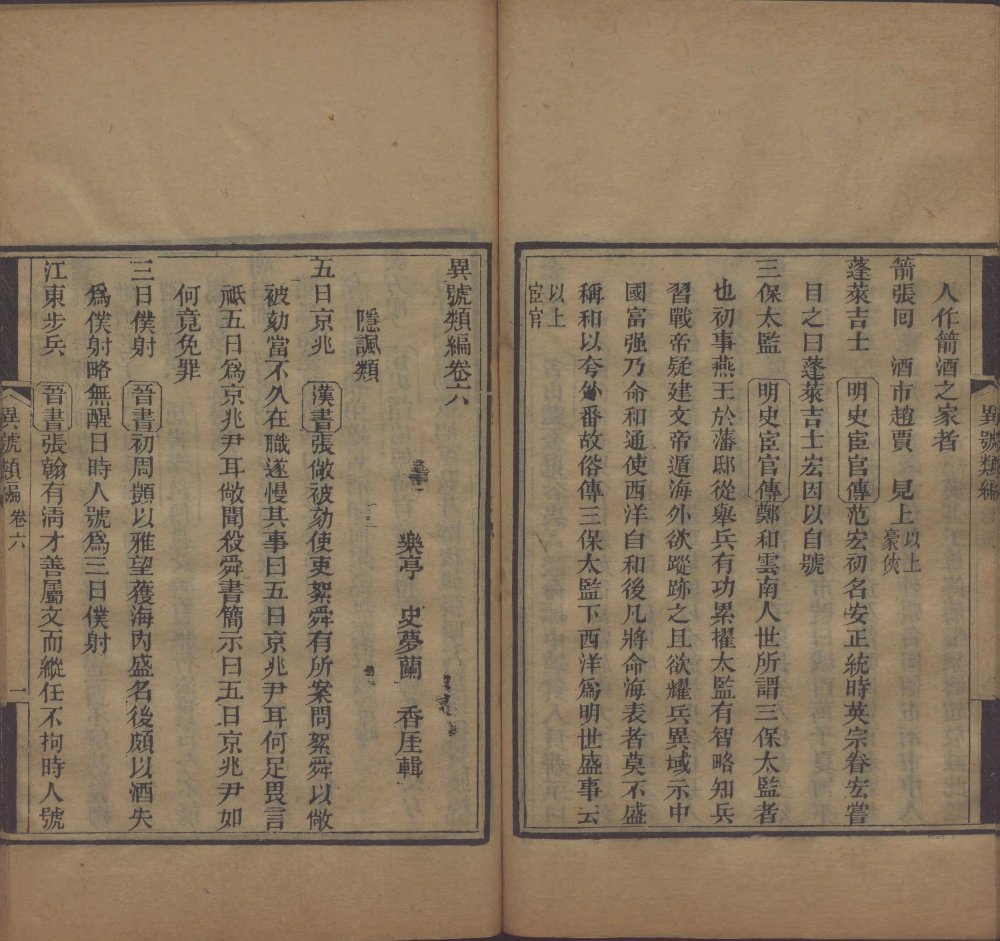 人作箭酒之家者
箭張囘 酒市趙賈 見上以上豪俠
蓬萊吉士 明史宦官傳范宏初名安正統時英宗眷宏嘗
目之曰蓬萊吉士宏因以自號
三保太監 明史宦官傳鄭和雲南人世所謂三保太監者
也初事燕王於藩邸從舉兵有功累擢太監有智略知兵
習戰帝疑建文帝遁海外欲蹤跡之且欲耀兵異域示中
國富强乃命和通使西洋自和後凡將命海表者莫不盛
稱和以夸外番故俗傳三保太監下西洋爲明世盛事云
以上宦官
異號類編
異號類編卷六
樂亭 史夢蘭 香厓輯
隱諷類
五日京兆 漢書張敞被劾使吏絮舜有所案問絮舜以敞
被劾當不久在職遂慢其事曰五日京兆尹耳何足畏言
祇五日爲京兆尹耳敞聞殺舜書簡示曰五日京兆尹如
何竟免罪
三日僕射 晉書初周顗以雅望獲海內盛名後頗以酒失
爲僕射略無醒日時人號爲三日僕射
江東步兵 晉書張翰有淸才善屬文而縱任不拘時人號
異號類編 卷六 一